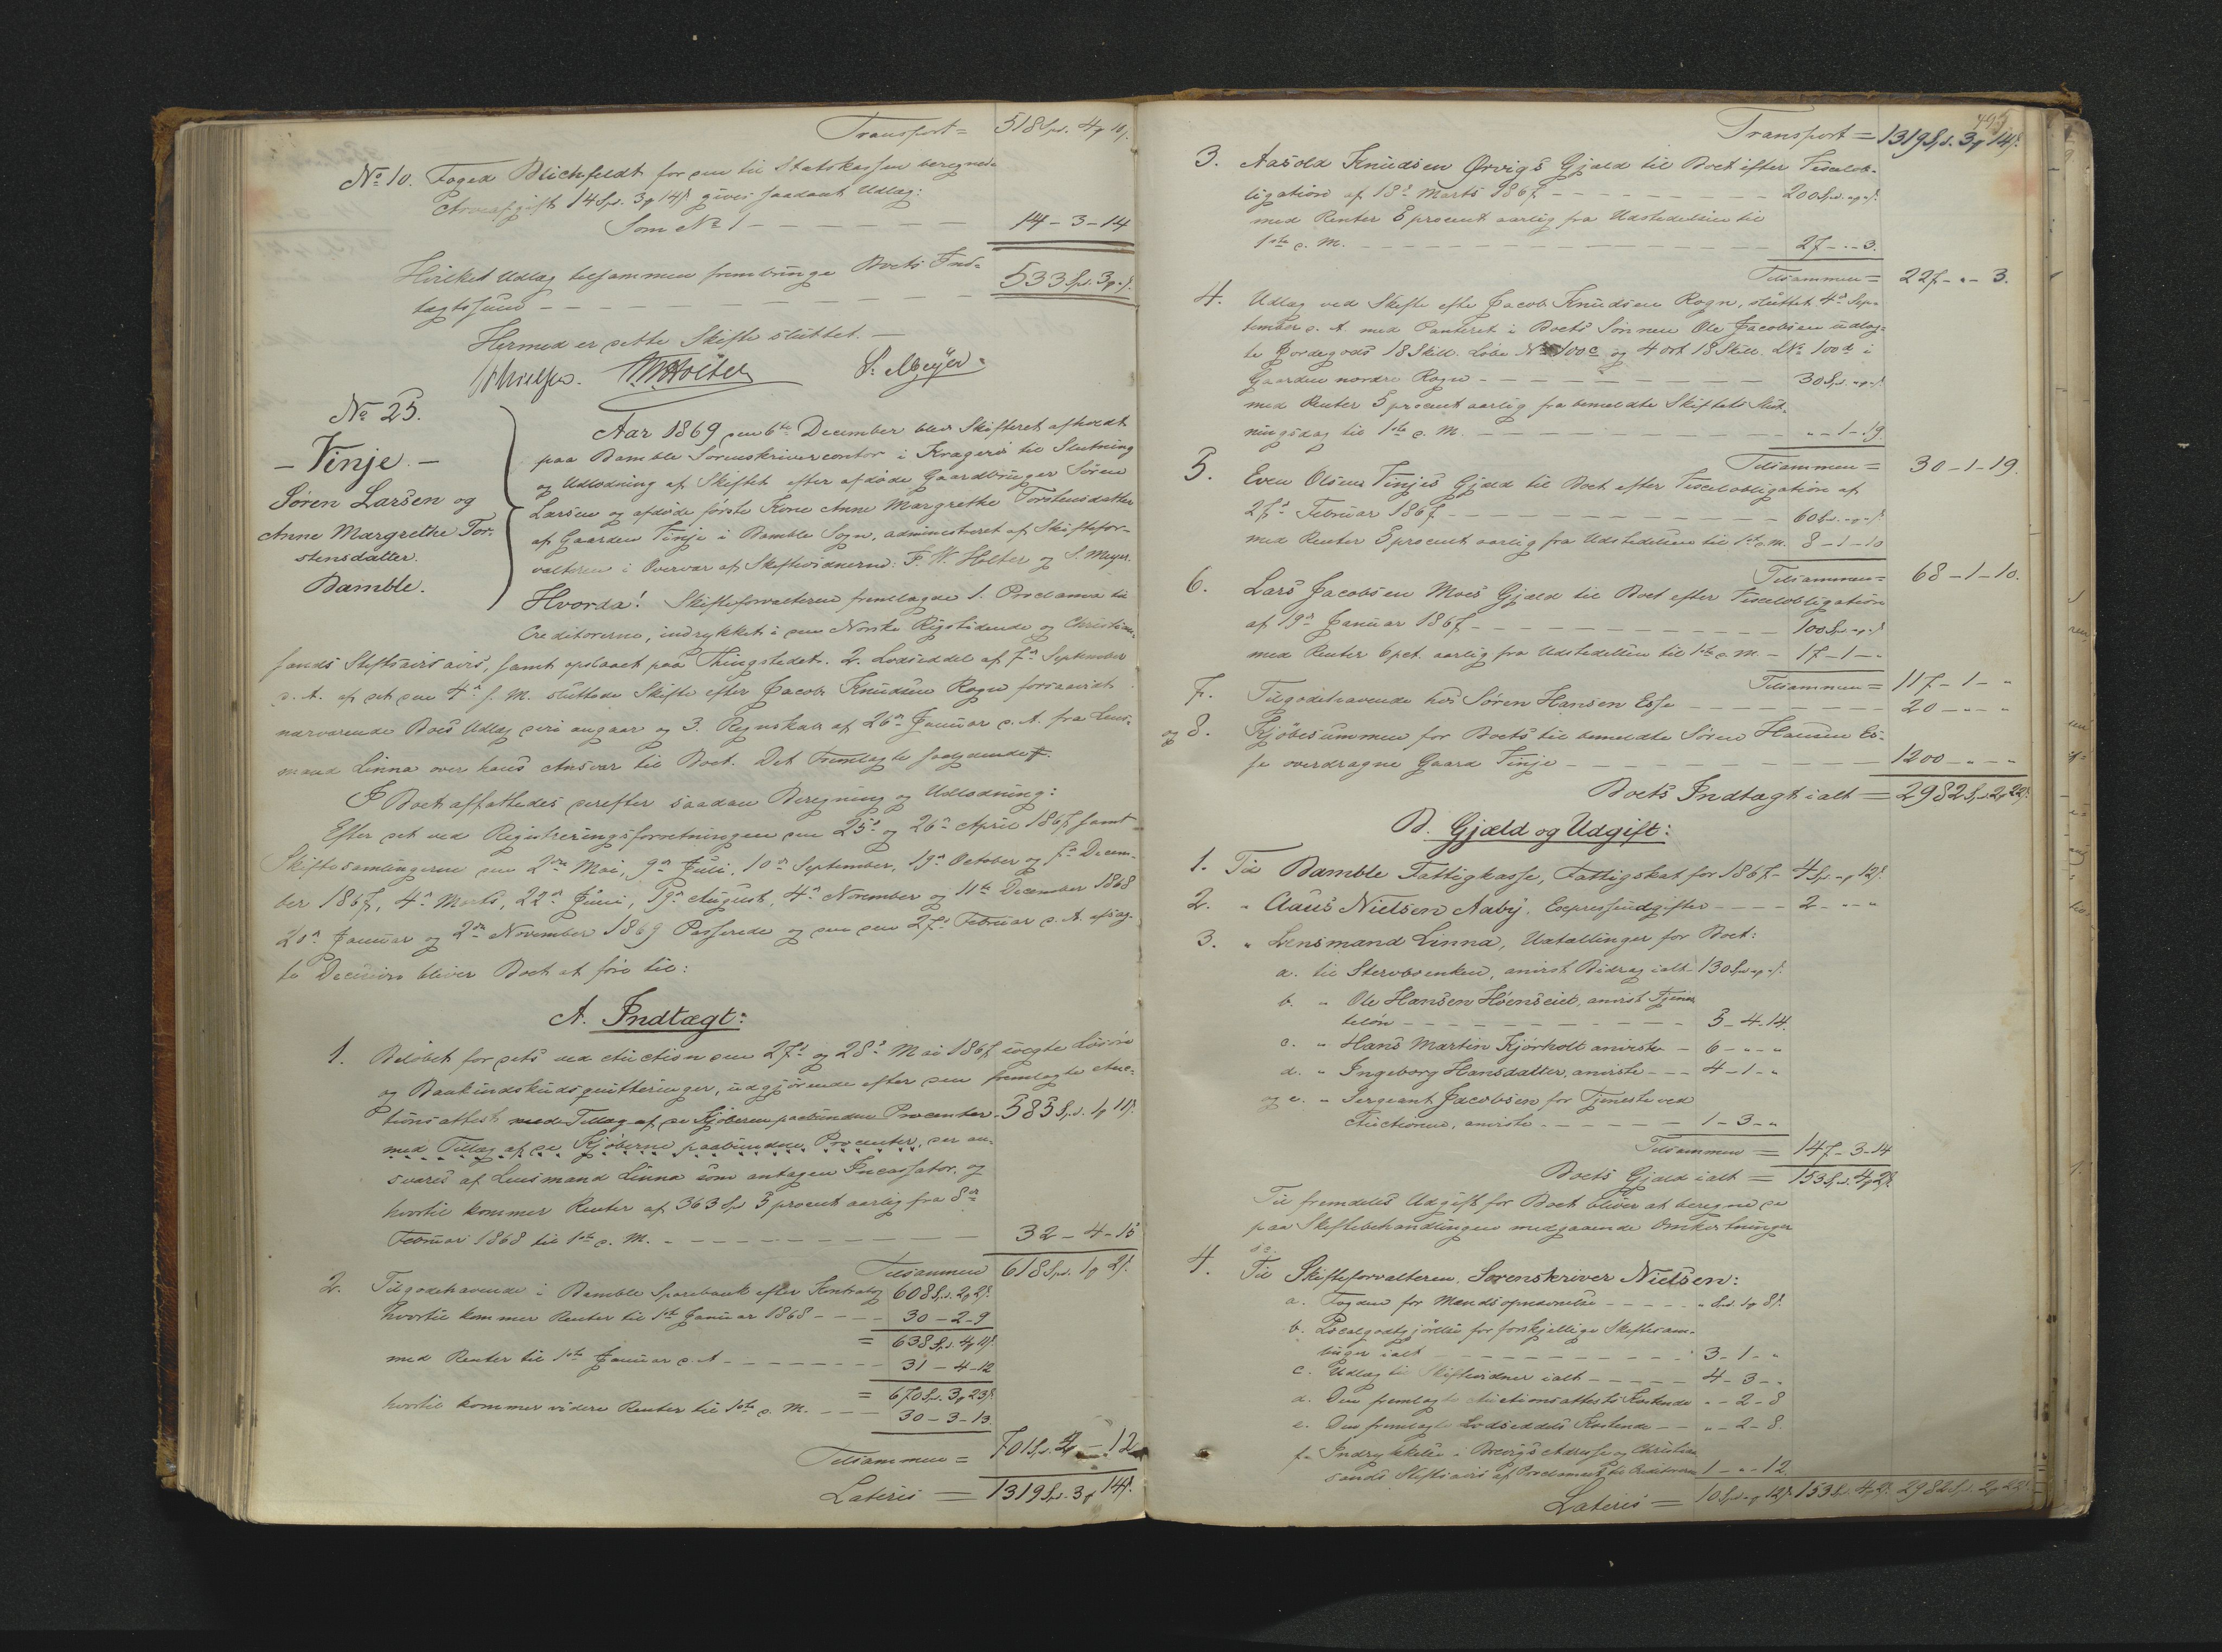 Transport = 518 Spd. 4 ß 10 ß.
No 10. Foged Blichfeldt for den til Statskassen beregnede
Arveafgift 14 Spd. 3 ß 14 ß gives saadant Udlæg:
Som No 1 - - - - - - - 14 - 3 - 14
Hvilket Udlæg tilsammen frembringe Boets Ind-
tægtssum - - - - - - - - - 533 Spd. 3 ß " ß.
Hermed er dette Skifte sluttet. -
Nielsen. F. W. Holter S. Meyer.
No 25.
- Vinje. -
Søren Larsen og
Anne Margrethe Tor-
stensdatter.
Bamble.
Aar 1869 den 6te December blev Skifteret afholdt
paa Bamble Sorenskrivercontor i Kragerø til Slutning
og Udlodning af Skiftet efter afdøde Gaardbruger Søren
Larsen og afdøde første Kone Anne Margrethe Torstensdatter
af Gaarden Vinje i Bamble Sogn, administreret af Skiftefor-
valteren i Overvær af Skiftevidnerne: F. W. Holter og S. Meyer.
Hvorda! Skifteforvalteren fremlagde 1. Proclama til
Creditorerne, indrykket i den Norske Rigstidende og Christian-
sands Stiftsavis, samt opslaaet paa Thingstedet. 2. Lodseddel af 7de September
d. A. af det den 4de f. M. sluttede Skifte efter Jacob Knudsen Rogn forsaavidt
nærværende Boes Udlæg deri angaar og 3. Regnskab af 26de Januar d. A. fra Lens-
mand Linna over hans Ansvar til Boet. Det Fremlagte saalydende #.
I Boet affattedes derefter saadan Beregning og Udlodning:
Efter det ved Registreringsforretningen den 25de og 26de April 1867 samt
Skiftesamlingerne den 2den Mai, 9de Juli, 10de September, 19de October og 7de Decem-
ber 1867, 4de Marts, 22de Juni, 19de August, 4de November og 11te December 1868
20de Januar og 2den November 1869 Passerede og den den 27de Februar d. A. afsag-
te Decision bliver Boet at føre til:
A. Indtægt:
1. Beløbet for dets ved Auction den 27de og 28de Mai 1867 solgte Løsøre
og Bankindskudsquitteringer, udgjørende efter den fremlagte Auc-
tionsattest med Tillæg af de Kjøberne paabundne Procenter - 585 Spd. 1 ß 11 ß.
med Tillæg af de Kjøberne paabundne Procenter, der an-
svares af Lensmand Linna som antagen Incassator, og
hvortil kommer Renter af 363 Spd 5 procent aarlig fra 8de
Februar 1868 til 1ste d. M. - - - - - - - 32 - 4 - 15
Tilsammen 618 Spd. 1 ß 2 ß.
2. Tilgodehavende i Bamble Sparebank efter Kontrabog 608 Spd. 2 ß 2 ß.
hvortil kommer Renter til 1ste Januar 1868 - - - 30 - 2 - 9
= 638 Spd. 4 ß 11 ß.
med Renter til 1ste Januar d. A - - - - - - 31 - 4 - 12
= 670 Spd. 3 ß 23 ß.
hvortil kommer videre Renter til 1ste d. M. - - - 30 - 3 - 13.
Tilsammen = 701 Spd. 2 - 12
Lateris = 1319 Spd. 3 ß 14 ß.
Transport = 1319 Spd. 3 ß 14 ß.
3. Aasold Knudsen Ørvigs Gjæld til Boet efter Vexelob-
ligation af 18de Marts 1867 - - - - - - 200 Spd. " ß " ß.
med Renter 5 procent aarlig fra Udstedelsen til
1ste d. M. - - - - - - - - - 27 - " - 3.
Tilsammen = 227 - " - 3.
4. Udlæg ved Skifte efter Jacob Knudsen Rogn, sluttet 4de Sep-
tember d. A. med Panteret i Boets Sønnen Ole Jacobsen udlag-
te Jordegods 18 Skill. Løbe No 100c og 4 ort 18 Skill. LNo 100d i
Gaarden nordre Rogn - - - - - - - - 30 Spd. " ß " ß.
med Renter 5 procent aarlig fra bemeldte Skiftets Slut-
ningsdag til 1ste d. M. - - - - - - - - " - 1 - 19.
Tilsammen = 30 - 1 - 19.
5. Even Olsen Vinjes Gjæld til Boet efter Vexelobligation af
27de Februar 1867 - - - - - - - - 60 Spd. " ß " ß.
med Renter 5 procent aarlig fra Udstedelsen til 1ste d. M. 8 - 1 - 10
Tilsammen = 68 - 1 - 10.
6. Lars Jacobsen Moes Gjæld til Boet efter Vexelobligation
af 19de Januar 1867 - - - - - - - 100 Spd. " ß " ß
med Renter 6 pct. aarlig fra Udstedelsen til 1ste d. M. - 17 - 1 - "
Tilsammen = 117 - 1 - "
7. Tilgodehavende hos Søren Hansen Esse - - - - - - 20 - " - "
og 8. Kjøbesummen for Boets til bemeldte Søren Hansen Es-
se overdragne Gaard Vinje - - - - - - - - 1200 - " - "
Boets Indtægt ialt = 2982 Spd. 2 ß 22 ß.
B. Gjæld og Udgift:
1. Til Bamble Fattigkasse, Fattigskat for 1867 - 4 Spd. " ß 12 ß.
2. " Aaus Nielsen Aaby, Expressudgifter - - - 2 - " - "
3. " Lensmand Linna, Udtællinger for Boet:
a. til Stervboenken, anvist Bidrag ialt - 130 Spd. " ß " ß.
b. " Ole Hansen Høenseie, anvist Tjenes
teløn - - - - - - - - - 5 - 4 - 14.
c. " Hans Martin Kjørholt anviste - 6 - " - "
d. " Ingeborg Hansdatter, anviste - - - 4 - 1 - "
og e. " Sergeant Jacobsen for Tjeneste ved
Auctionen, anviste - - - - - - 1 - 3 - "
Tilsammen = 147 - 3 - 14
Boets Gjæld ialt = 153 Spd. 4 ß 2 ß.
Til fremdeles Udgift for Boet bliver at beregne de
paa Skiftebehandlingen medgaaende Omkostninger
s. s.
4. Til Skifteforvalteren, Sorenskriver Nielsen:
a. Fogden for Mænds opnævnelse - - - - " Spd. 1 ß 8 ß.
b. Localgodtgjørelse for forskjellige Skiftesam-
linger ialt - - - - - - - - 3 - 1 - "
c. Udlæg til Skiftevidner ialt - - - - - 4 - 3 - "
d. Den fremlagte Auctionsattests Kostende " - 2 - 8
e. Den fremlagte Lodseddels Kostende - - " - 2 - 8.
f. Indrykkelse i Brevigs Adresse og Christian
sands Stiftsavis af Proclamaet til Creditorerne 1 - " - 12.
Lateris = 10 Spd. " ß 12 ß. 153 Spd. 4 ß 2 ß. 2982 Spd. 2 ß 22 ß.